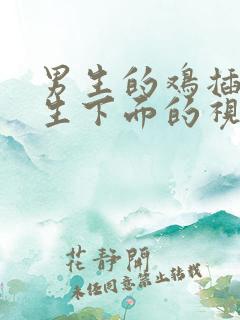 男生的鸡插
生下面的視
花静閒
未经同意禁止转载